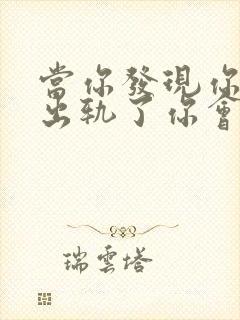 當你發現你
出軌了你會
瑞雲塔